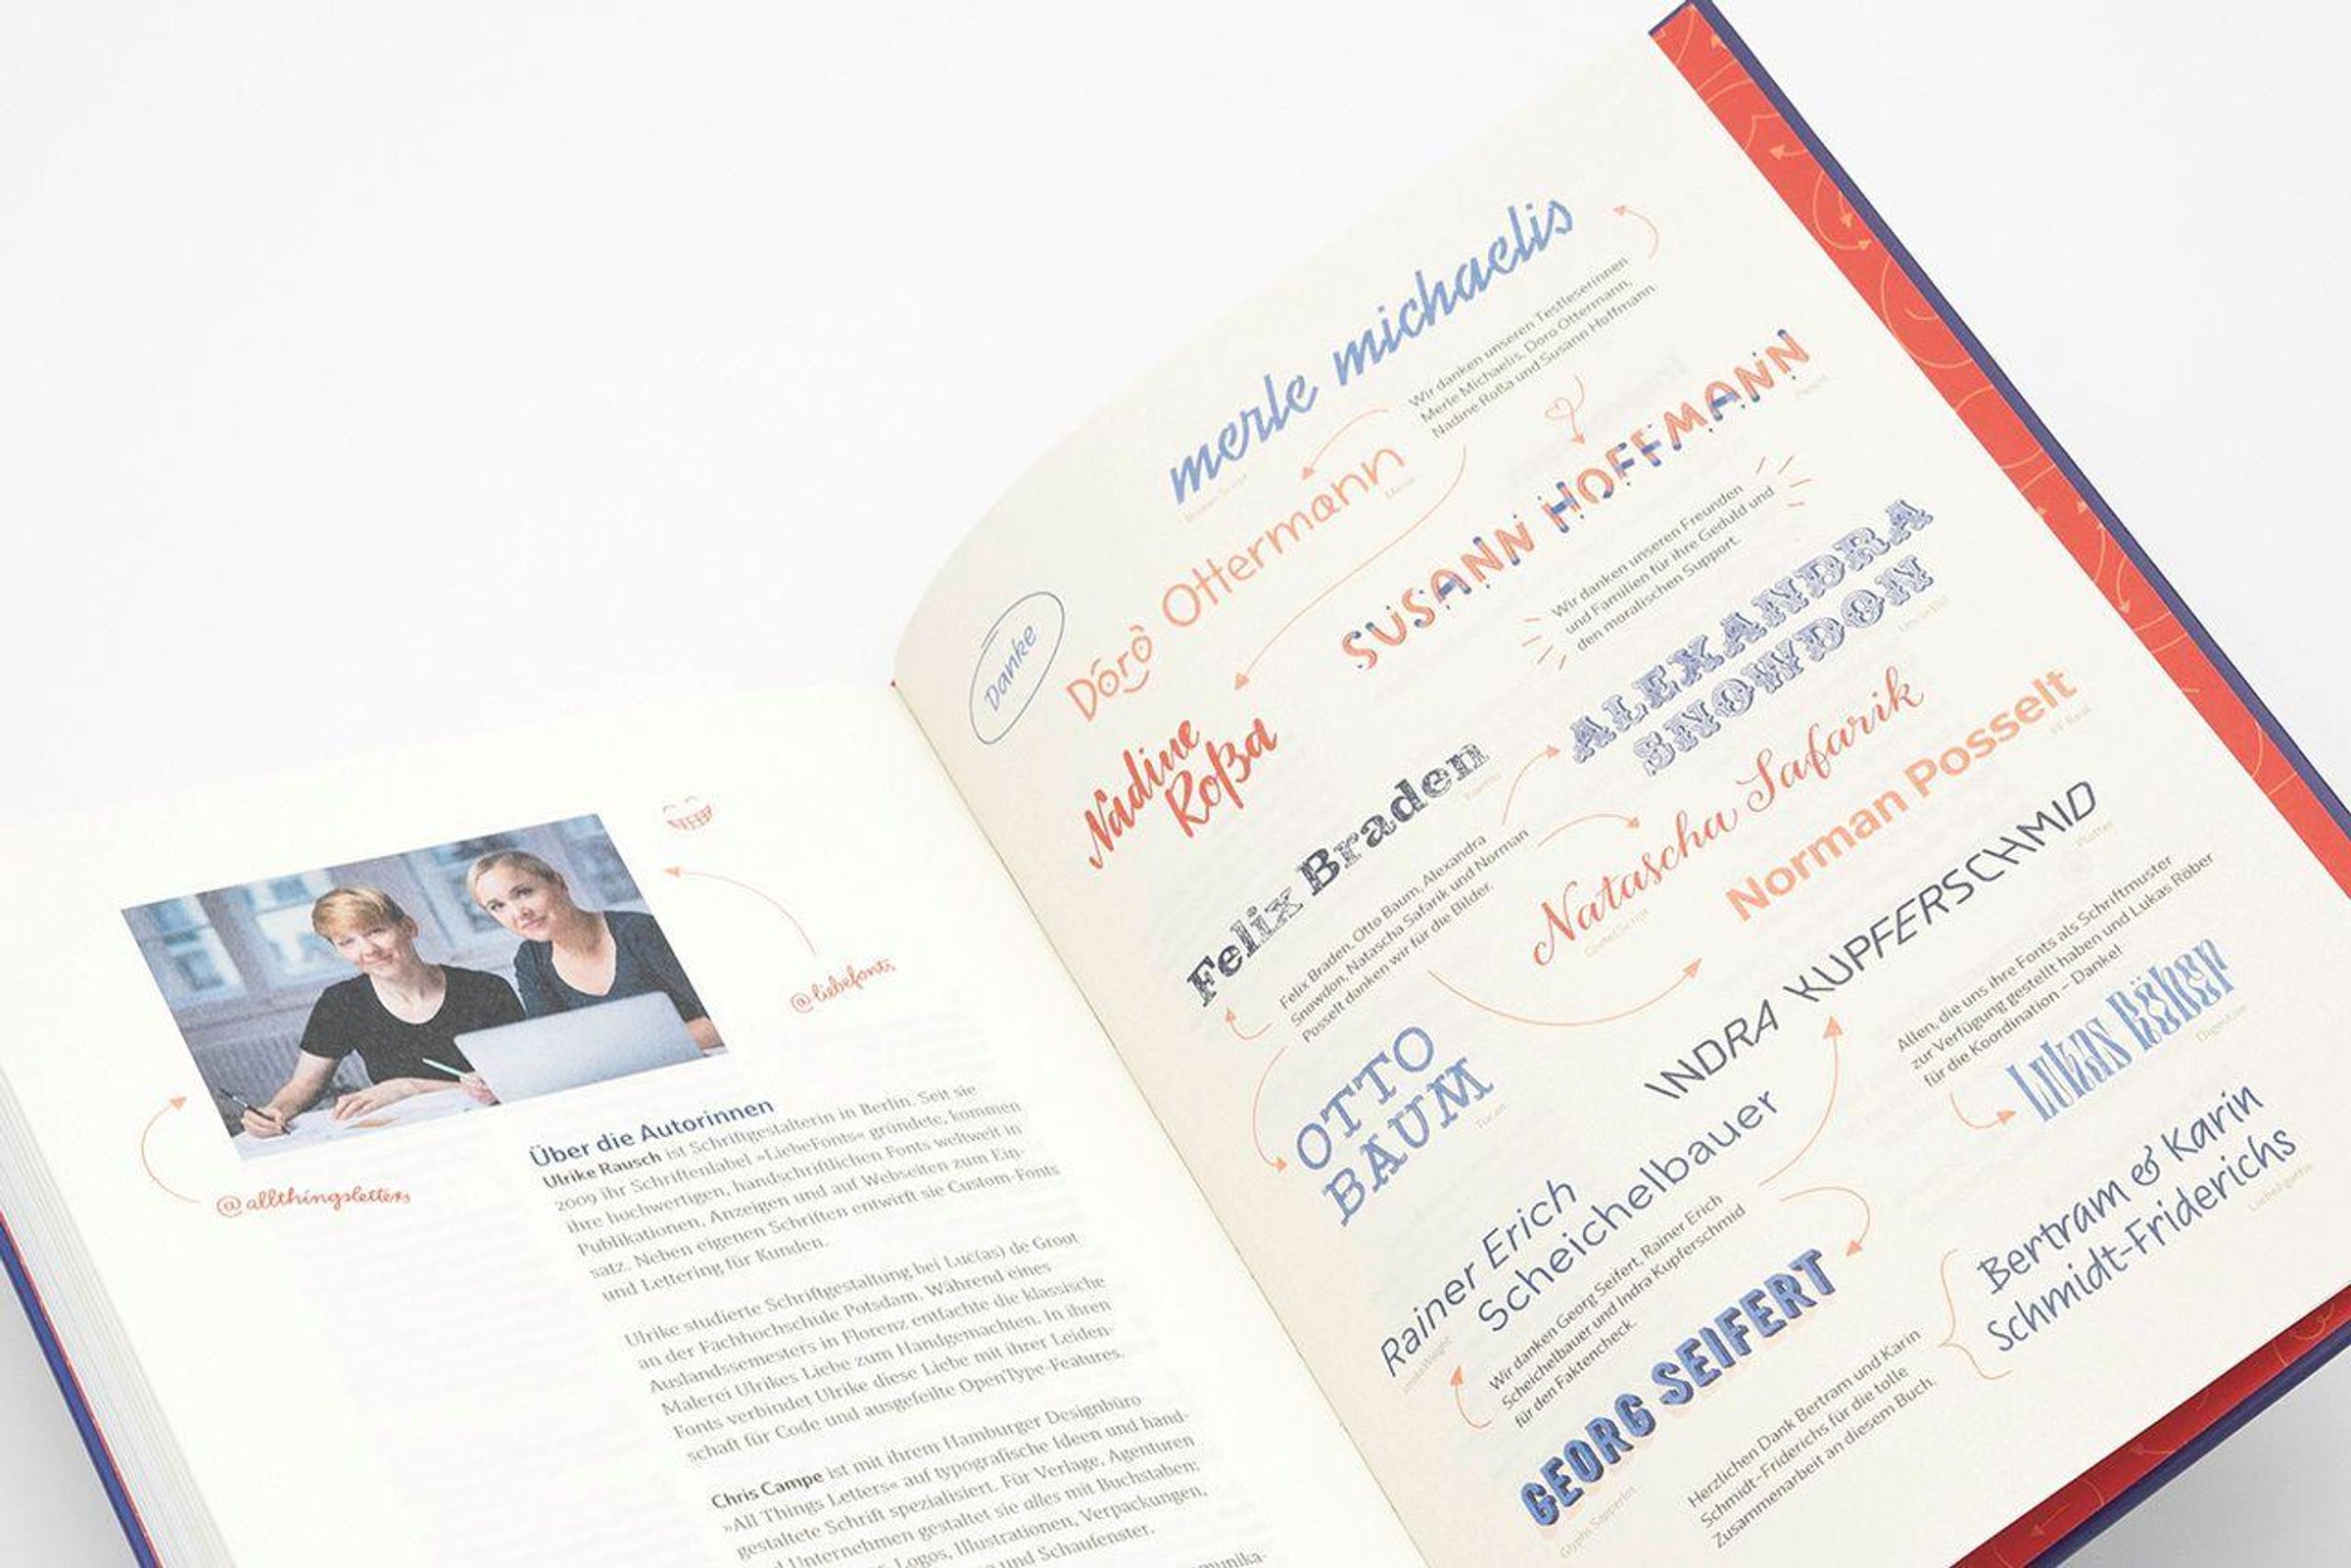 @liebefonts
@allthingsletters
Über die Autorinnen
Ulrike Rausch ist Schriftgestalterin in Berlin. Seit sie
2009 ihr Schriftenlabel »LiebeFonts« gründete, kommen
ihre hochwertigen, handschriftlichen Fonts weltweit in
Publikationen, Anzeigen und auf Webseiten zum Ein-
satz. Neben eigenen Schriften entwirft sie Custom-Fonts
und Lettering für Kunden.
Ulrike studierte Schriftgestaltung bei Luc(as) de Groot
an der Fachhochschule Potsdam. Während eines
Auslandssemesters in Florenz entfachte die klassische
Malerei Ulrikes Liebe zum Handgemachten. In ihren
Fonts verbindet Ulrike diese Liebe mit ihrer Leiden-
schaft für Code und ausgefeilte OpenType-Features.
Chris Campe ist mit ihrem Hamburger Designbüro
»All Things Letters« auf typografische Ideen und hand-
gestaltete Schrift spezialisiert. Für Verlage, Agenturen
Unternehmen gestaltet sie alles mit Buchstaben:
Logos, Illustrationen, Verpackungen,
und Schaufenster.
Danke
merle michaelis
Wir danken unseren Testleserinnen
Merle Michaelis, Doro Ottermann,
Nadine Roßa und Susann Hoffmann.
Doro Ottermann
SUSANN HOFFMANN
Nadine
Roßa
Wir danken unseren Freunden
und Familien für ihre Geduld und
den moralischen Support.
ALEXANDRA
SNOWDON
Felix Braden
Felix Braden, Otto Baum, Alexandra
Snowdon, Natascha Safarik und Norman
Posselt danken wir für die Bilder.
Natascha Safarik
Norman Posselt
OTTO
BAUM
INDRA KUPFERSCHMID
Allen, die uns ihre Fonts als Schriftmuster
zur Verfügung gestellt haben und Lukas Röber
für die Koordination – Danke!
Lukas Röber
Digestive
Rainer Erich
Scheichelbauer
Wir danken Georg Seifert, Rainer Erich
Scheichelbauer und Indra Kupferschmid
für den Faktencheck.
GEORG SEIFERT
Bertram & Karin
Schmidt-Friderichs
Herzlichen Dank Bertram und Karin
Schmidt-Friderichs für die tolle
Zusammenarbeit an diesem Buch.